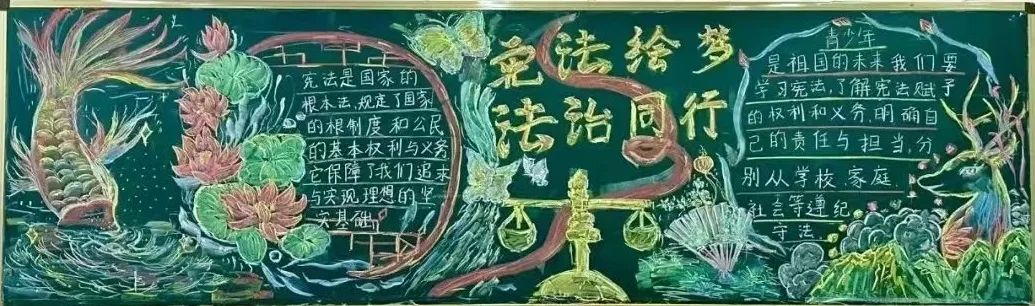 宪法是国家的
根本法,规定了国家
的根制度和公民
的基本权利与义务
它保障了我们追求
与实现理想的坚
实基础
宪法绘梦
法治同行
青少年
是祖国的未来我们要
学习宪法,了解宪法赋予
的权利和义务,明确自
己的责任与担当,分
别从学校家庭
社会等遵纪
守法